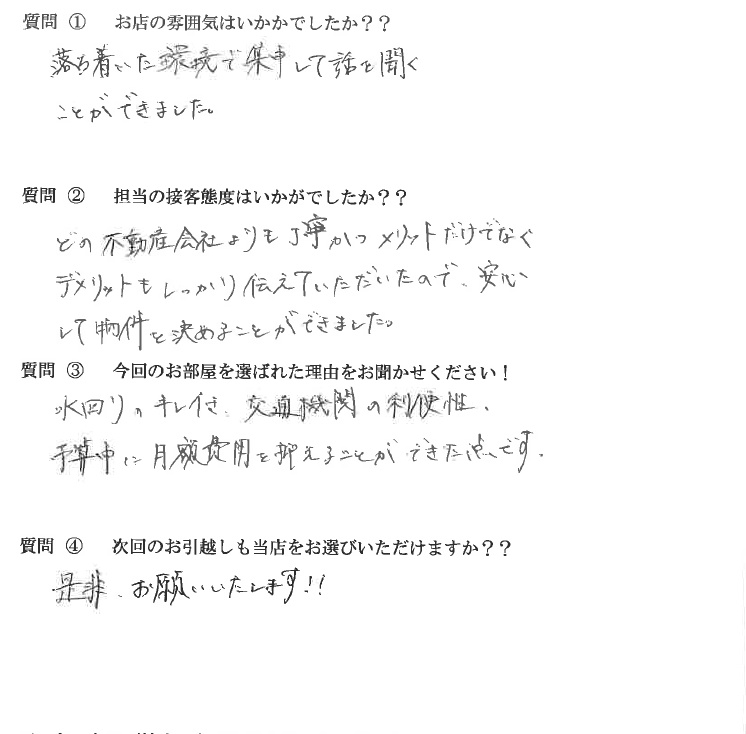 質問 ① お店の雰囲気はいかかでしたか？？
落ち着いた環境で集中して話を聞く
ことができました。
質問 ② 担当の接客態度はいかがでしたか？？
どの不動産会社よりも丁寧かつメリットだけでなく
デメリットもしっかり伝えていただいたので、安心
して物件を決めることができました。
質問 ③ 今回のお部屋を選ばれた理由をお聞かせください！
水回りのキレイさ、交通機関の利便性、
予算中に月額費用を抑えることができた点です。
質問 ④ 次回のお引越しも当店をお選びいただけますか？？
是非、お願いいたします!!